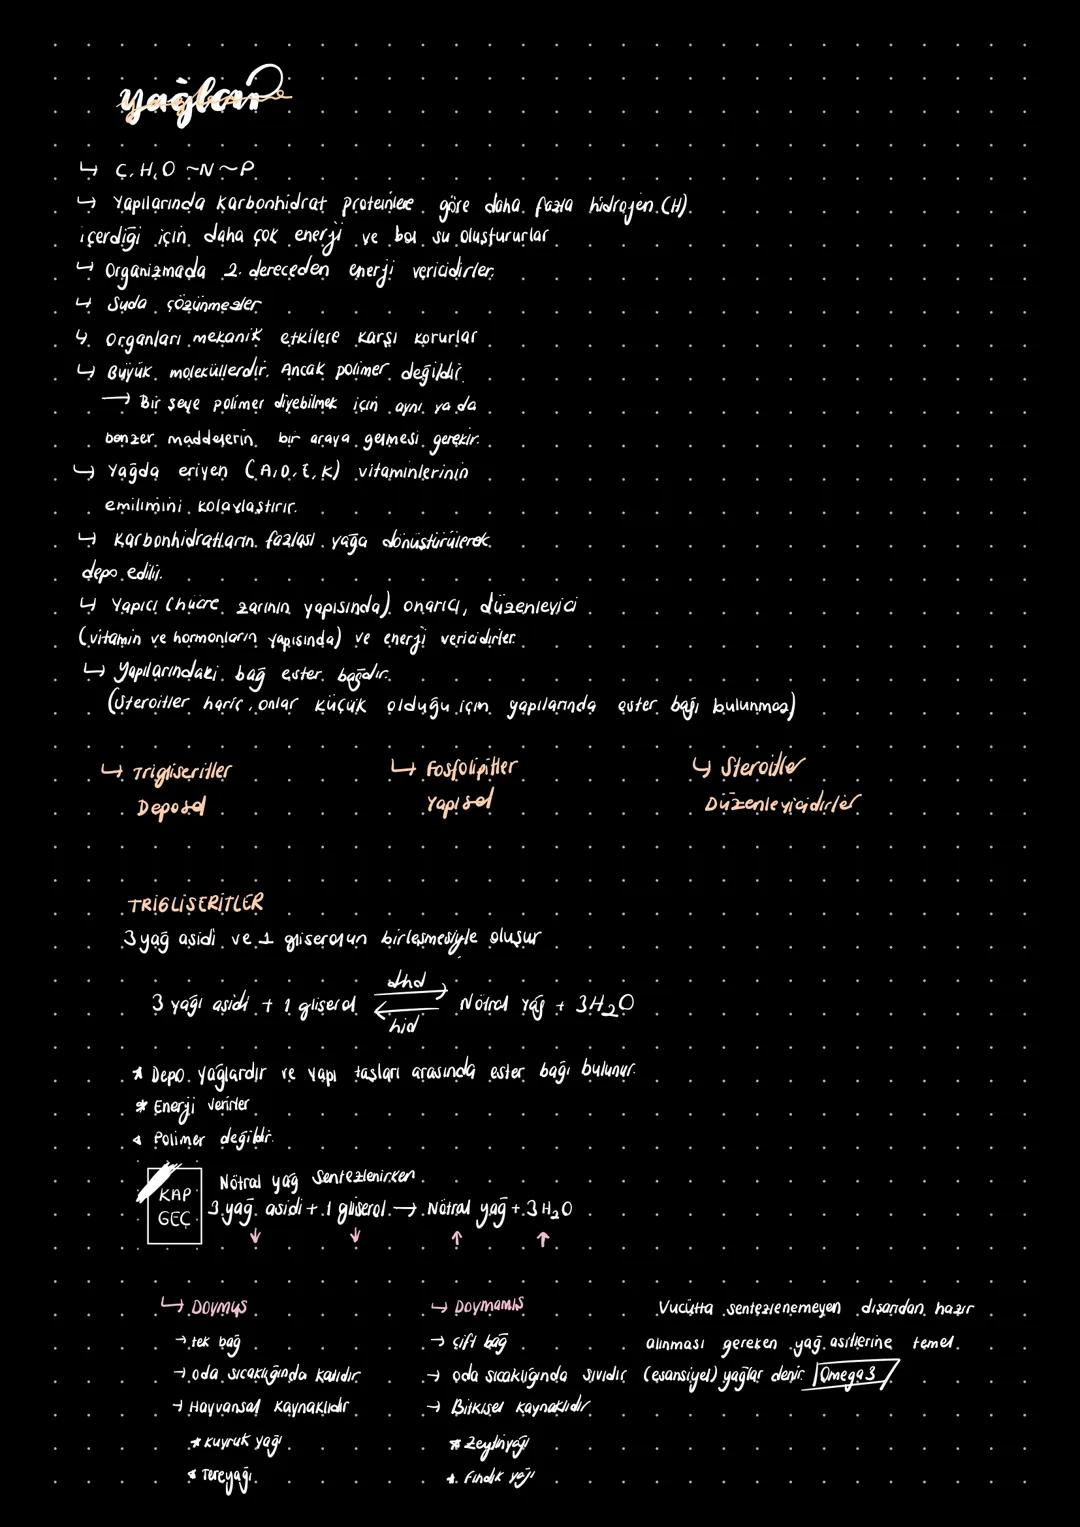 yağlar
↳ C, H, O ~N ~P
↳ Yapılarında karbonhidrat proteinlere göre daha fazla hidrojen (H)
içerdiği için daha çok enerji ve bol su oluştururlar
↳ Organizmada 2. dereceden enerji vericidirler.
↳ Suda çözünmezler
↳ Organları mekanik etkilere karşı korurlar
↳ Büyük moleküllerdir. Ancak polimer değildir.
→ Bir şeye polimer diyebilmek için aynı ya da
benzer maddelerin bir araya gelmesi gerekir.
↳ Yağda eriyen (A, D, E, K) vitaminlerinin
emilimini kolaylaştırır.
↳ Karbonhidratların fazlası yağa dönüştürülerek
depo edilir.
↳ Yapıcı (hücre zarının yapısında) onarıcı, düzenleyici
(vitamin ve hormonların yapısında) ve enerji vericidirler.
↳ Yapılarındaki bağ ester bağıdır.
(Steroitler hariç, onlar küçük olduğu için yapılarında ester bağı bulunmaz)
↳ Trigliseritler ↳ Fosfolipitler ↳ Steroitler
Deposal Yapısal Düzenleyicidirler
TRİGLİSERİTLER
3 yağ asidi ve 1 gliserolun birleşmesiyle oluşur
dhd
3 yağı asidi + 1 gliserol ⇄ Nötral yağ + 3H₂O
hid
* Depo yağlardır ve yapı taşları arasında ester bağı bulunur.
* Enerji verirler
* Polimer değildir.
Nötral yağ Sentezlenirken
KAP GEÇ 3 yağ asidi + 1 gliserol → Nötral yağ + 3H₂O
↓ ↓ ↑ ↑
↳ Doymuş
→ tek bağ
→ oda sıcaklığında katıdır
→ Hayvansal kaynaklıdır
* kuyruk yağı
* Tereyağı
↳ Doymamış
→ çift bağ
→ oda sıcaklığında sıvıdır
→ Bitkisel kaynaklıdır.
* Zeytinyağı
* Fındık yağı
Vucütta sentezlenemeyen dışarıdan hazır
alınması gereken yağ asitlerine temel
(esansiyel) yağlar denir. Omega 3